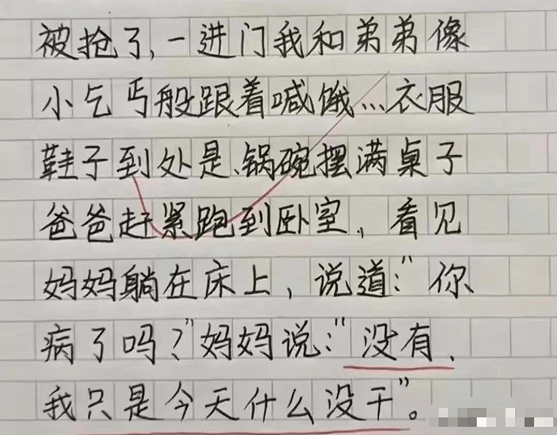 被抢了,一进门我和弟弟像
小乞丐般跟着喊饿…衣服
鞋子到处是、锅碗摆满桌子
爸爸赶紧跑到卧室，看见
妈妈躺在床上，说道:“你
病了吗?”妈妈说:“没有、
我只是今天什么没干”。